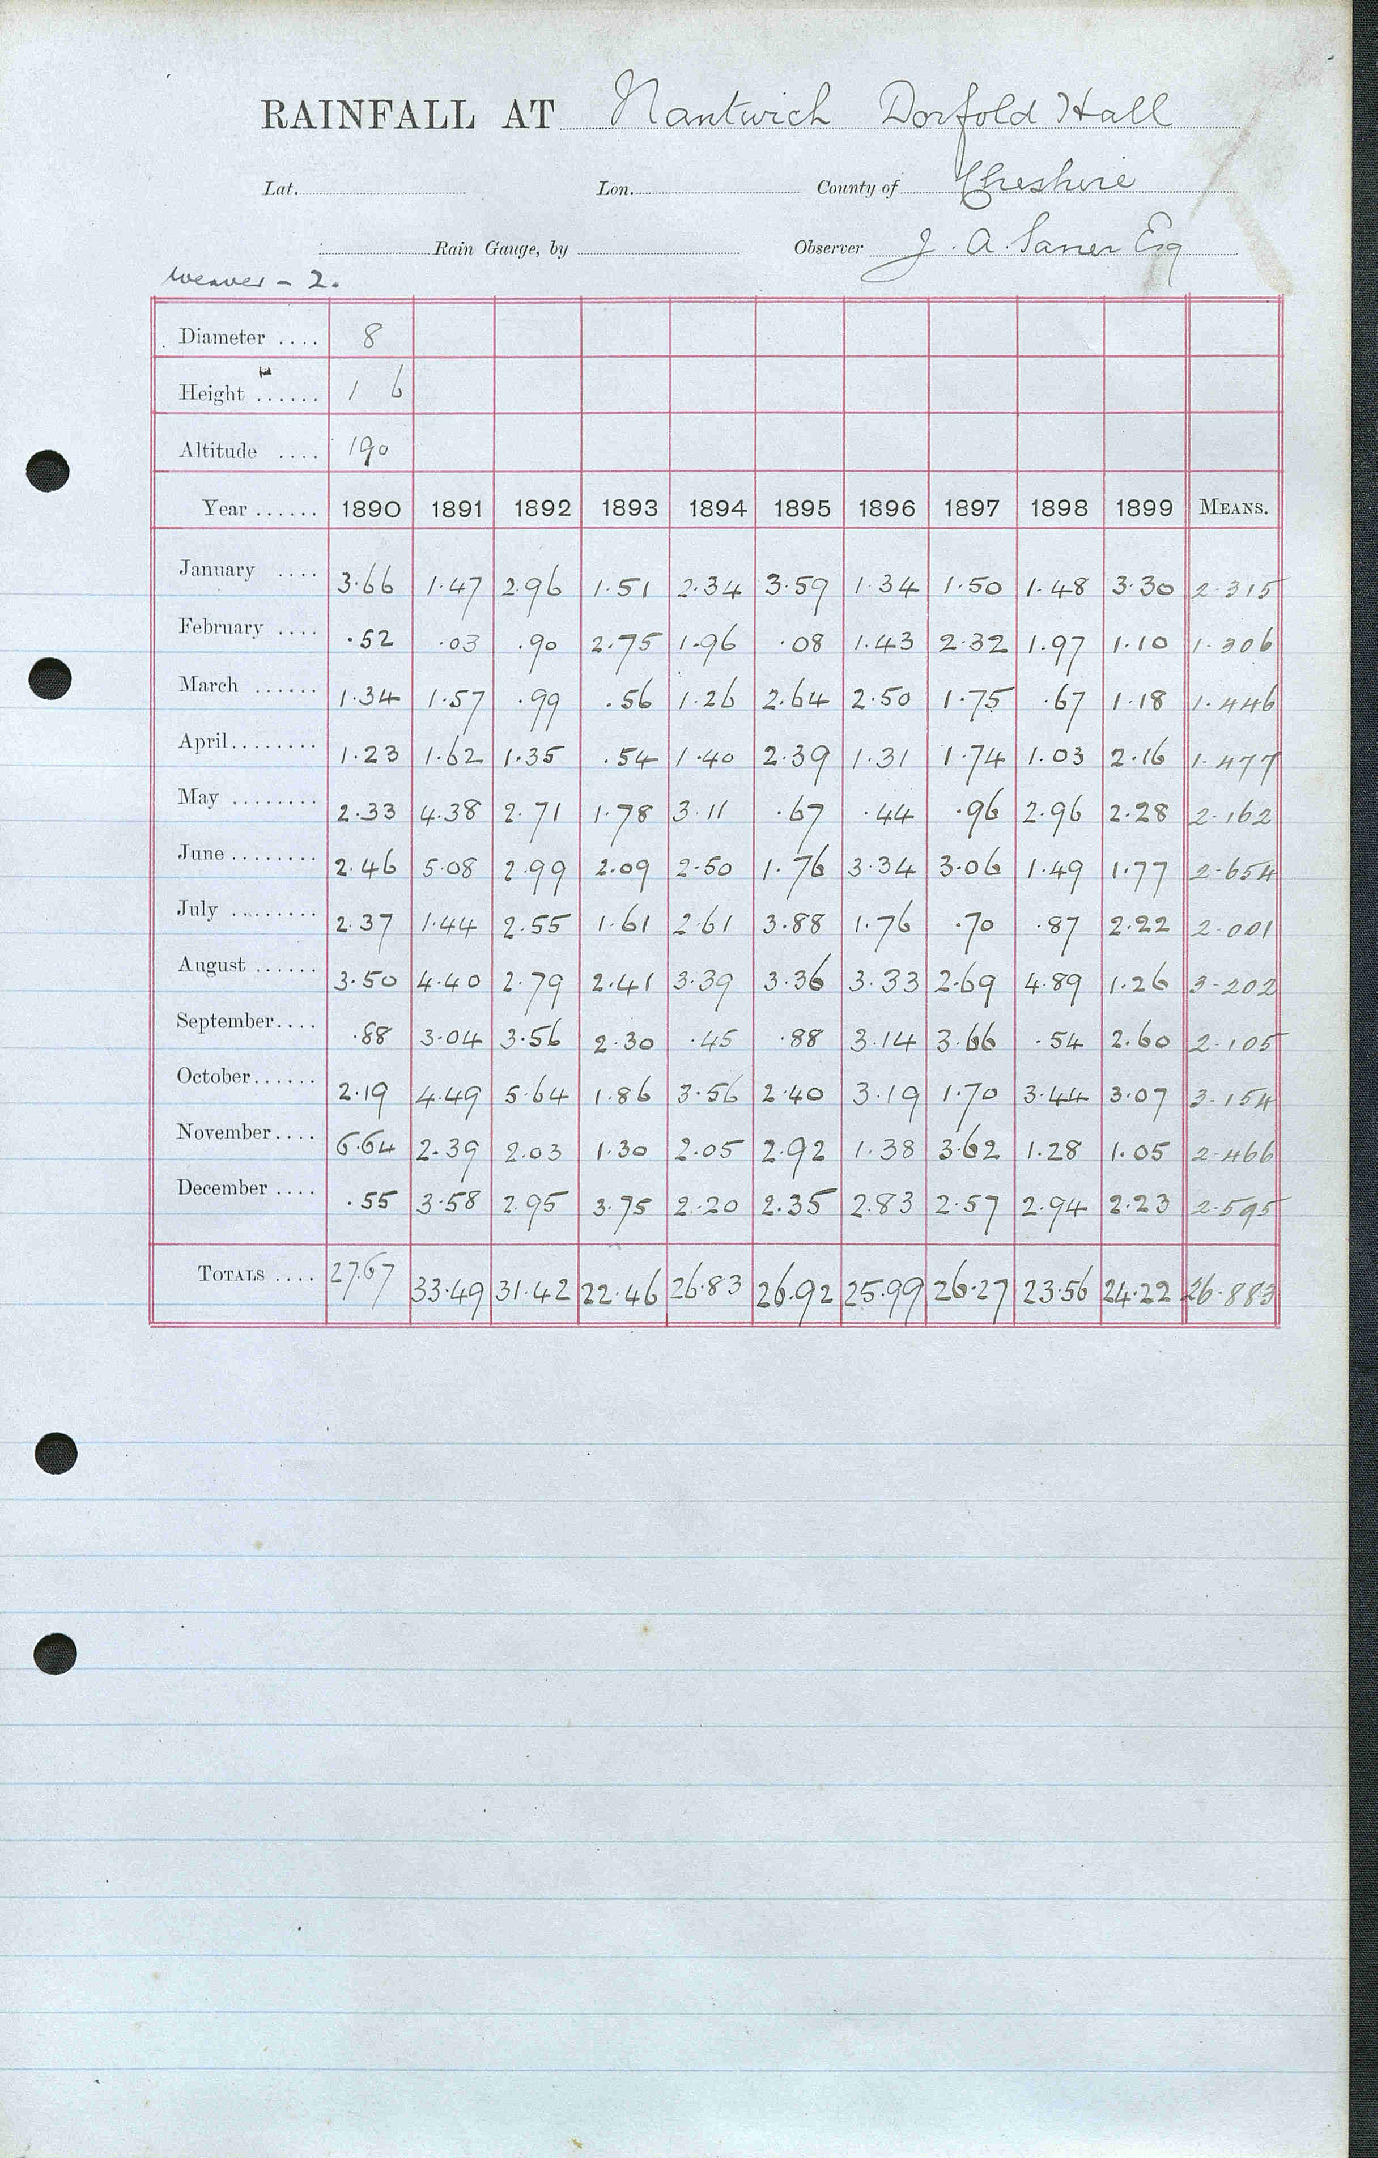 RAINFALL AT Nantwich Dorfold Hall
Lat. Lon. County of Cheshire
Rain Gauge, by Observer J. A. Saner Esq
Weaver - 2.
Diameter .... 8
Height ...... 1 6
Altitude .... 190
Year ...... 1890 1891 1892 1893 1894 1895 1896 1897 1898 1899 MEANS.
January .... 3.66 1.47 2.96 1.51 2.34 3.59 1.34 1.50 1.48 3.30 2.315
February .... .52 .03 .90 2.75 1.96 .08 1.43 2.32 1.97 1.10 1.306
March ...... 1.34 1.57 .99 .56 1.26 2.64 2.50 1.75 .67 1.18 1.446
April........ 1.23 1.62 1.35 .54 1.40 2.39 1.31 1.74 1.03 2.16 1.477
May ........ 2.33 4.38 2.71 1.78 3.11 .67 .44 .96 2.96 2.28 2.162
June........ 2.46 5.08 2.99 2.09 2.50 1.76 3.34 3.06 1.49 1.77 2.654
July ........ 2.37 1.44 2.55 1.61 2.61 3.88 1.76 .70 .87 2.22 2.001
August ...... 3.50 4.40 2.79 2.41 3.39 3.36 3.33 2.69 4.89 1.26 3.202
September.... .88 3.04 3.56 2.30 .45 .88 3.14 3.66 .54 2.60 2.105
October...... 2.19 4.49 5.64 1.86 3.56 2.40 3.19 1.70 3.44 3.07 3.154
November.... 6.64 2.39 2.03 1.30 2.05 2.92 1.38 3.62 1.28 1.05 2.466
December .... .55 3.58 2.95 3.75 2.20 2.35 2.83 2.57 2.94 2.23 2.595
TOTALS .... 27.67 33.49 31.42 22.46 26.83 26.92 25.99 26.27 23.56 24.22 26.883